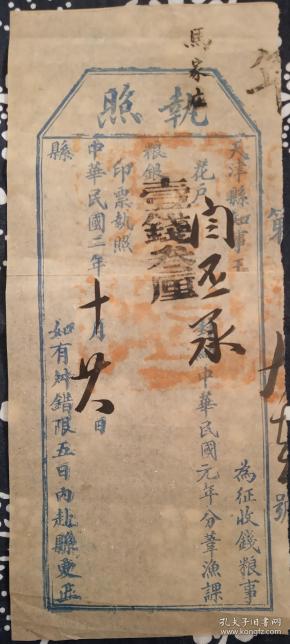 馬家庄
執照
天津縣知事王 為征收錢粮事
花戶 閆丕承 中華民國元年分葦漁課
粮銀 壹錢叁厘
印票執照
中華民國二年十月廿八日
縣 如有舛錯限五日內赴縣更正
第 號